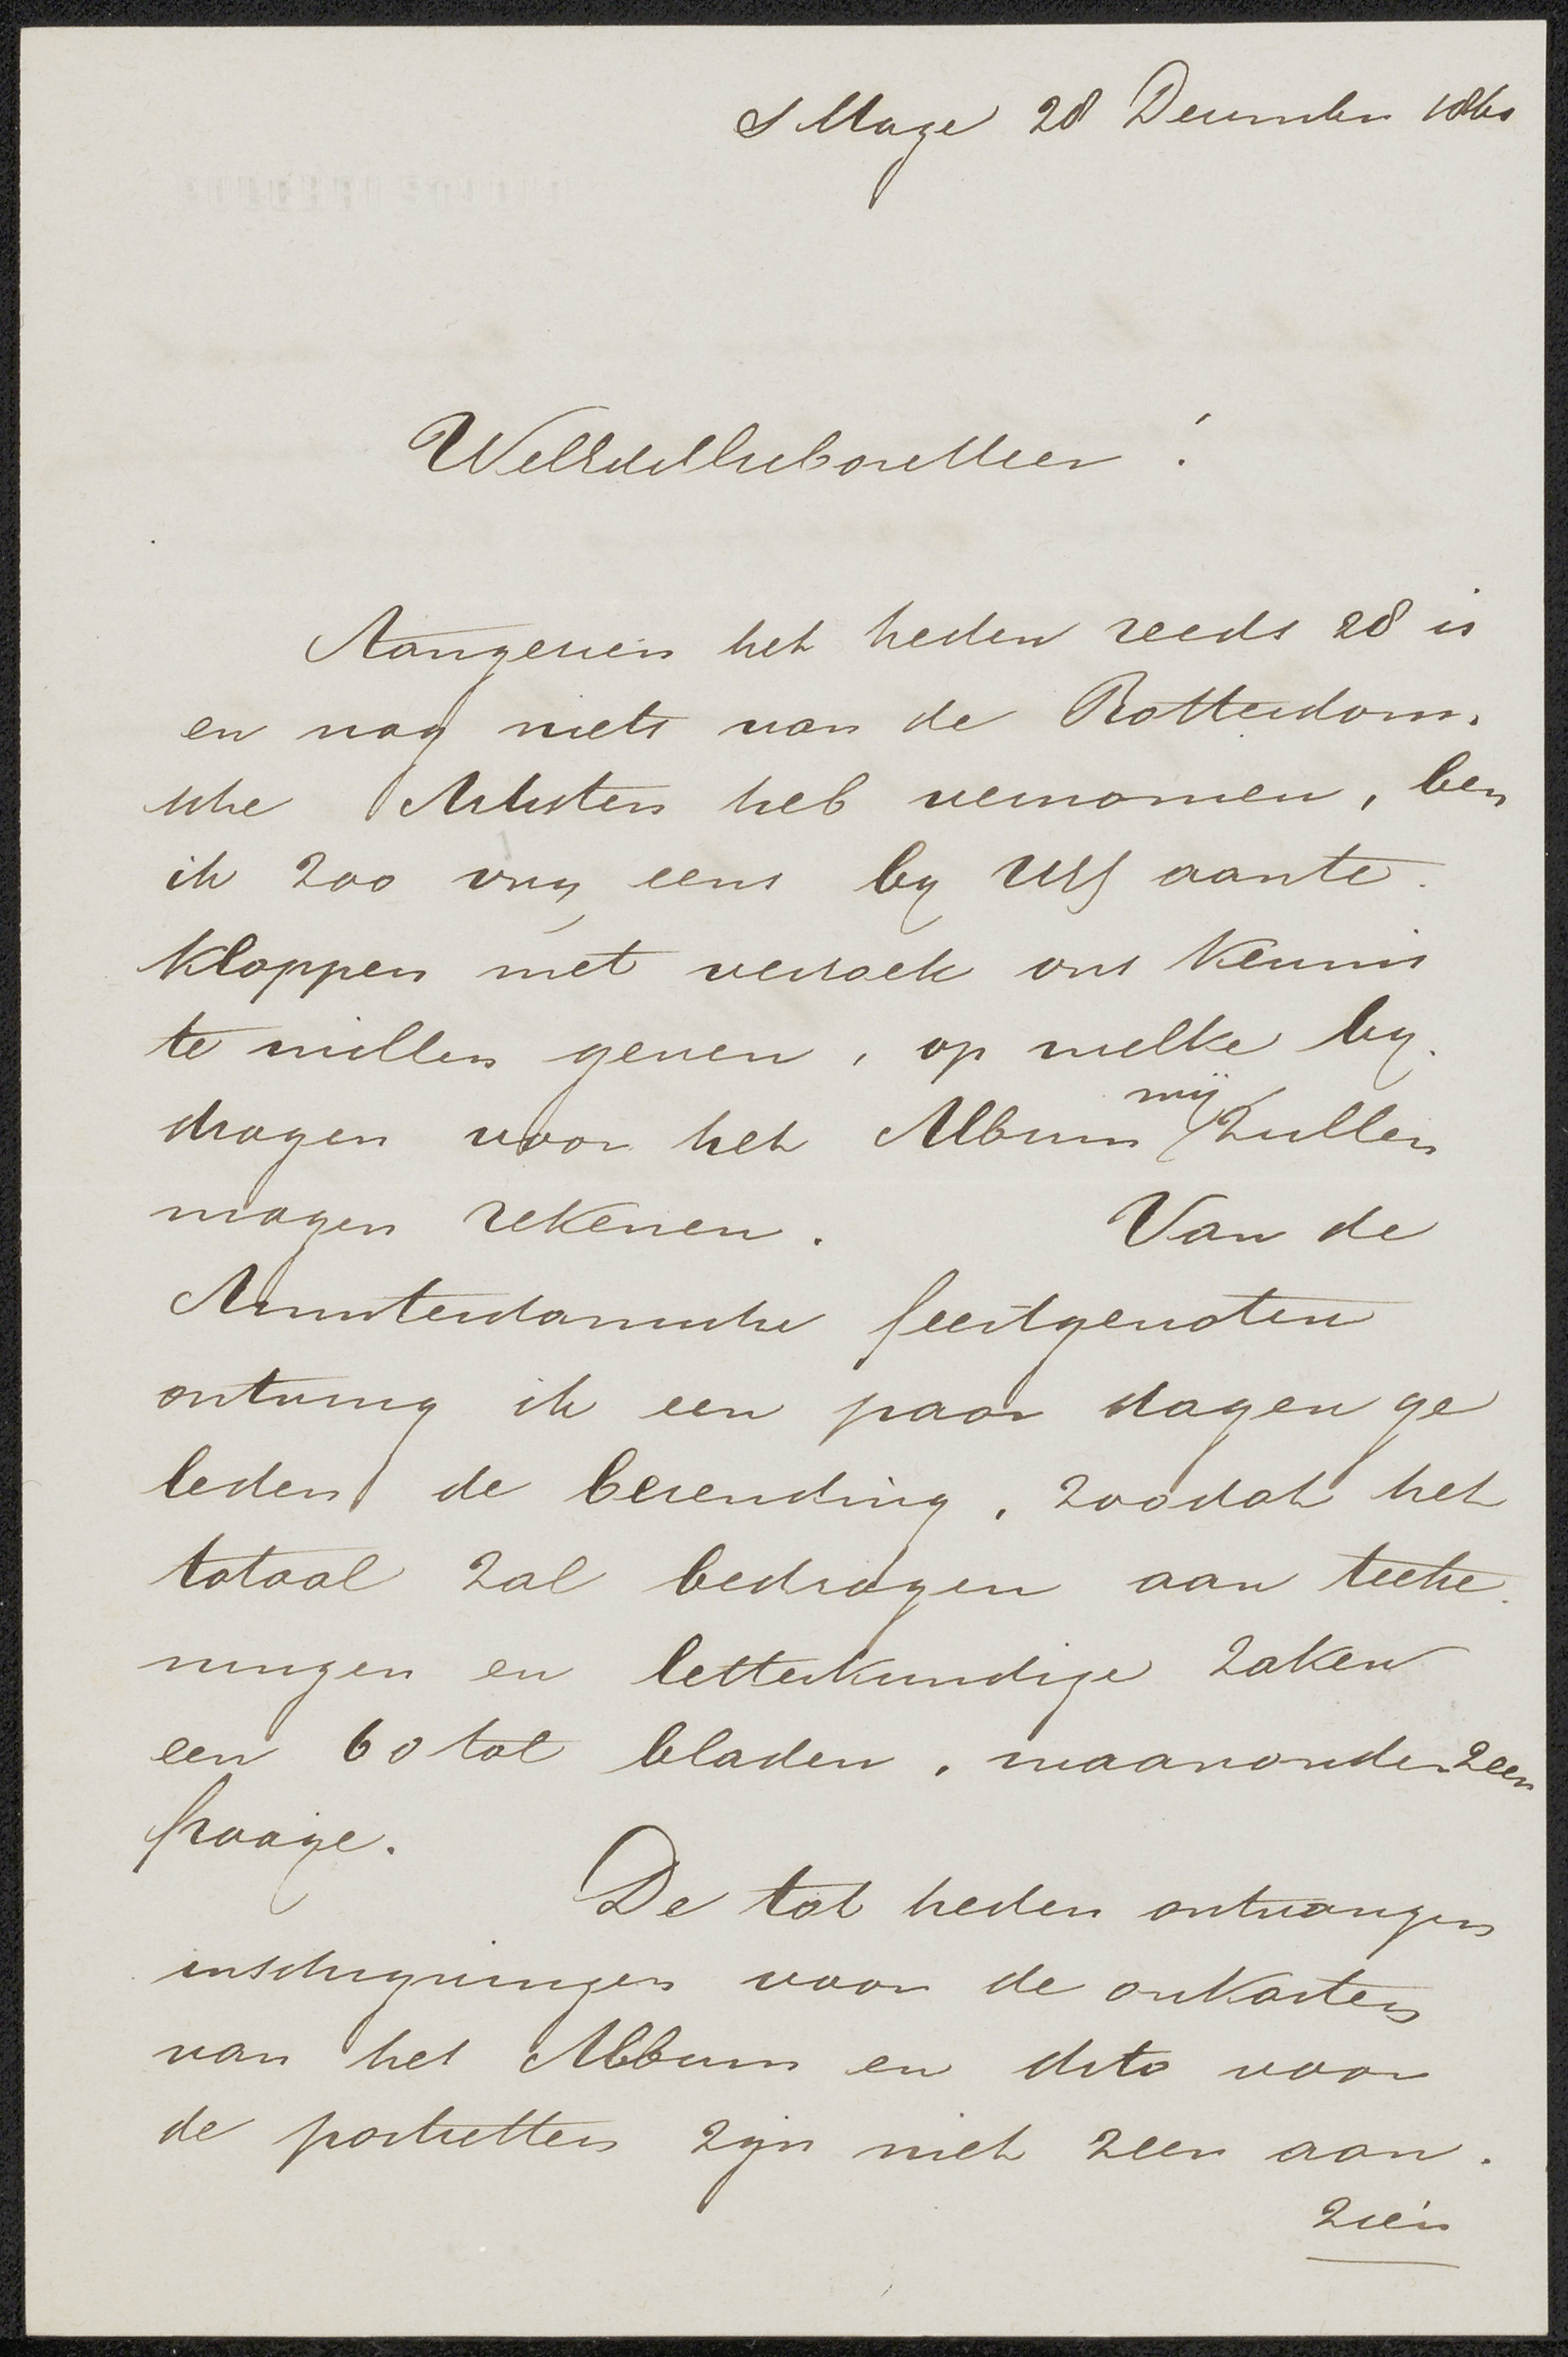 s'Hage 28 December 1860
WelEdelGeboreHeer !
Aangezien het heden reeds 28 is
en nog niets van de Rotterdam-
sche Artisten heb vernomen, ben
ik zoo vrij eens by UEd aante-
kloppen met verzoek ons kennis
te willen geven, op welke by-
dragen voor het Album wij zullen
mogen rekenen. Van de
Amsterdamsche feestgenoten
ontving ik een paar dagen ge
leden de bezending, zoodat het
totaal zal bedragen aan teeke-
ningen en letterkundige zaken
een 60 tal bladen, waaronder zeer
fraaije.
De tot heden ontvangen
inschryvingen voor de onkosten
van het Album en dito voor
de portretten zyn niet zeer aan-
zien